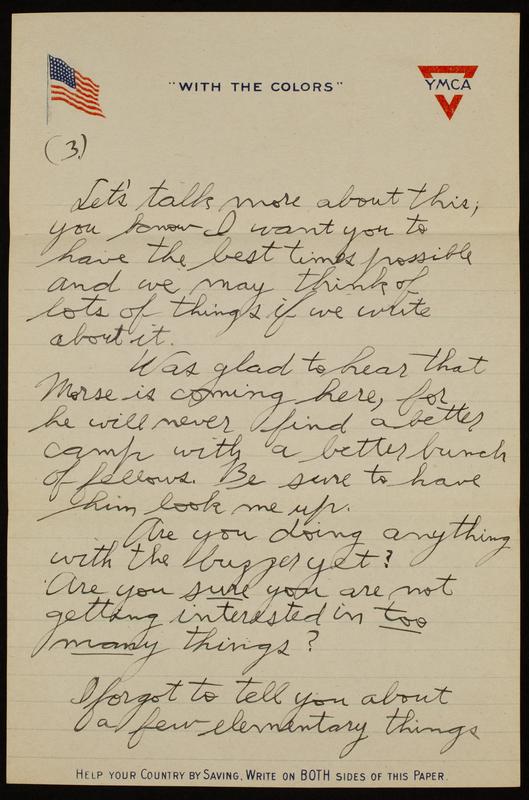 "WITH THE COLORS"
YMCA
(3.)
Let's talk more about this;
you know I want you to
have the best times possible
and we may think of
lots of things if we write
about it.
Was glad to hear that
Morse is coming here, for
he will never find a better
camp with a better bunch
of fellows. Be sure to have
him look me up.
Are you doing anything
with the buzzer yet?
Are you sure you are not
getting interested in too
many things?
I forgot to tell you about
a few elementary things
HELP YOUR COUNTRY BY SAVING. WRITE ON BOTH SIDES OF THIS PAPER.